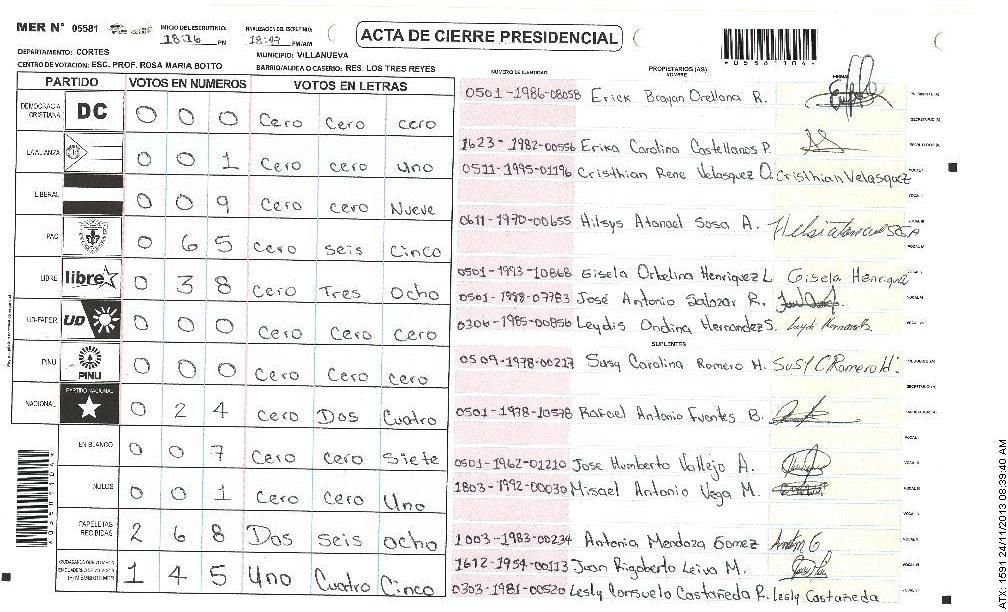 MER N° 05581 INICIO DEL ESCRUTINIO: 18:16 PM FINALIZACION DEL ESCRUTINIO: 18:47 PM/AM ACTA DE CIERRE PRESIDENCIAL
DEPARTAMENTO: CORTES MUNICIPIO: VILLANUEVA
CENTRO DE VOTACION: ESC. PROF. ROSA MARIA BOTTO BARRIO/ALDEA O CASERIO: RES. LOS TRES REYES
PARTIDO VOTOS EN NUMEROS VOTOS EN LETRAS
DEMOCRACIA CRISTIANA DC 0 0 0 Cero Cero cero
LA ALIANZA 0 0 1 Cero cero uno
LIBERAL 0 0 9 Cero cero Nueve
PAC 0 6 5 Cero seis Cinco
LIBRE libre 0 3 8 Cero Tres Ocho
UD-FAPER UD 0 0 0 Cero Cero Cero
PINU PINU 0 0 0 Cero Cero cero
NACIONAL PARTIDO NACIONAL 0 2 4 cero Dos Cuatro
EN BLANCO 0 0 7 Cero cero Siete
NULOS 0 0 1 Cero Cero Uno
PAPELETAS RECIBIDAS 2 6 8 Dos seis ocho
1 4 5 Uno Cuatro Cinco
NUMERO DE IDENTIDAD PROPIETARIOS (AS) NOMBRE FIRMA
0501-1986-08058 Erick Brayan Orellana R.
1623-1982-00556 Erika Carolina Castellanos P.
0511-1995-01196 Cristhian Rene Velasquez O. Cristhian Velasquez
0611-1970-00655 Hilsys Atanael Sosa A.
0501-1993-10868 Gisela Orkelina Henriquez L Gisela Henriquez
0501-1998-07783 José Antonio Salazar R.
0306-1985-00856 Leydis Ondina Hernandez S.
SUPLENTES
0509-1978-00217 Susy Carolina Romero H. Susy C Romero H.
0501-1978-10578 Rafael Antonio Fuentes B.
0501-1962-01210 Jose Humberto Vallejo A.
1803-1992-00030 Misael Antonio Vega M.
1003-1983-00234 Antonia Mendoza Gomez
1612-1954-00113 Juan Rigoberto Leiva M.
0303-1981-00520 Lesly Consuelo Castañeda R. Lesly Castañeda
*05581104*
TX: 1591 24/11/2013 08:39:40 AM